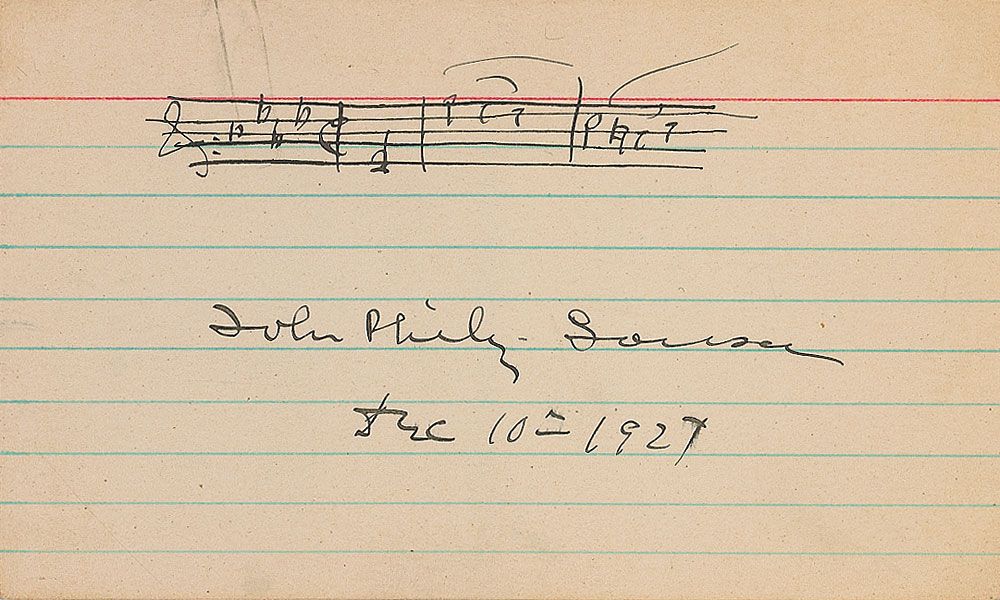 John Philip Sousa
Dec 10th 1927